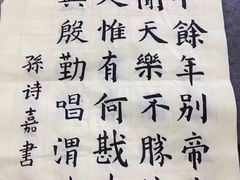 餘年別帝
聞天樂不勝
人惟有何戡
與殷勤唱渭
孫诗嘉書